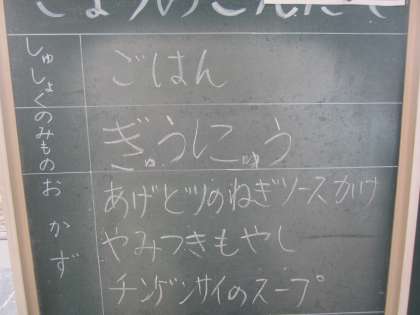 きょうのこんだて
しゅしょく
ごはん
のみもの
ぎゅうにゅう
おかず
あげどりのねぎソースがけ
やみつきもやし
チンゲンサイのスープ